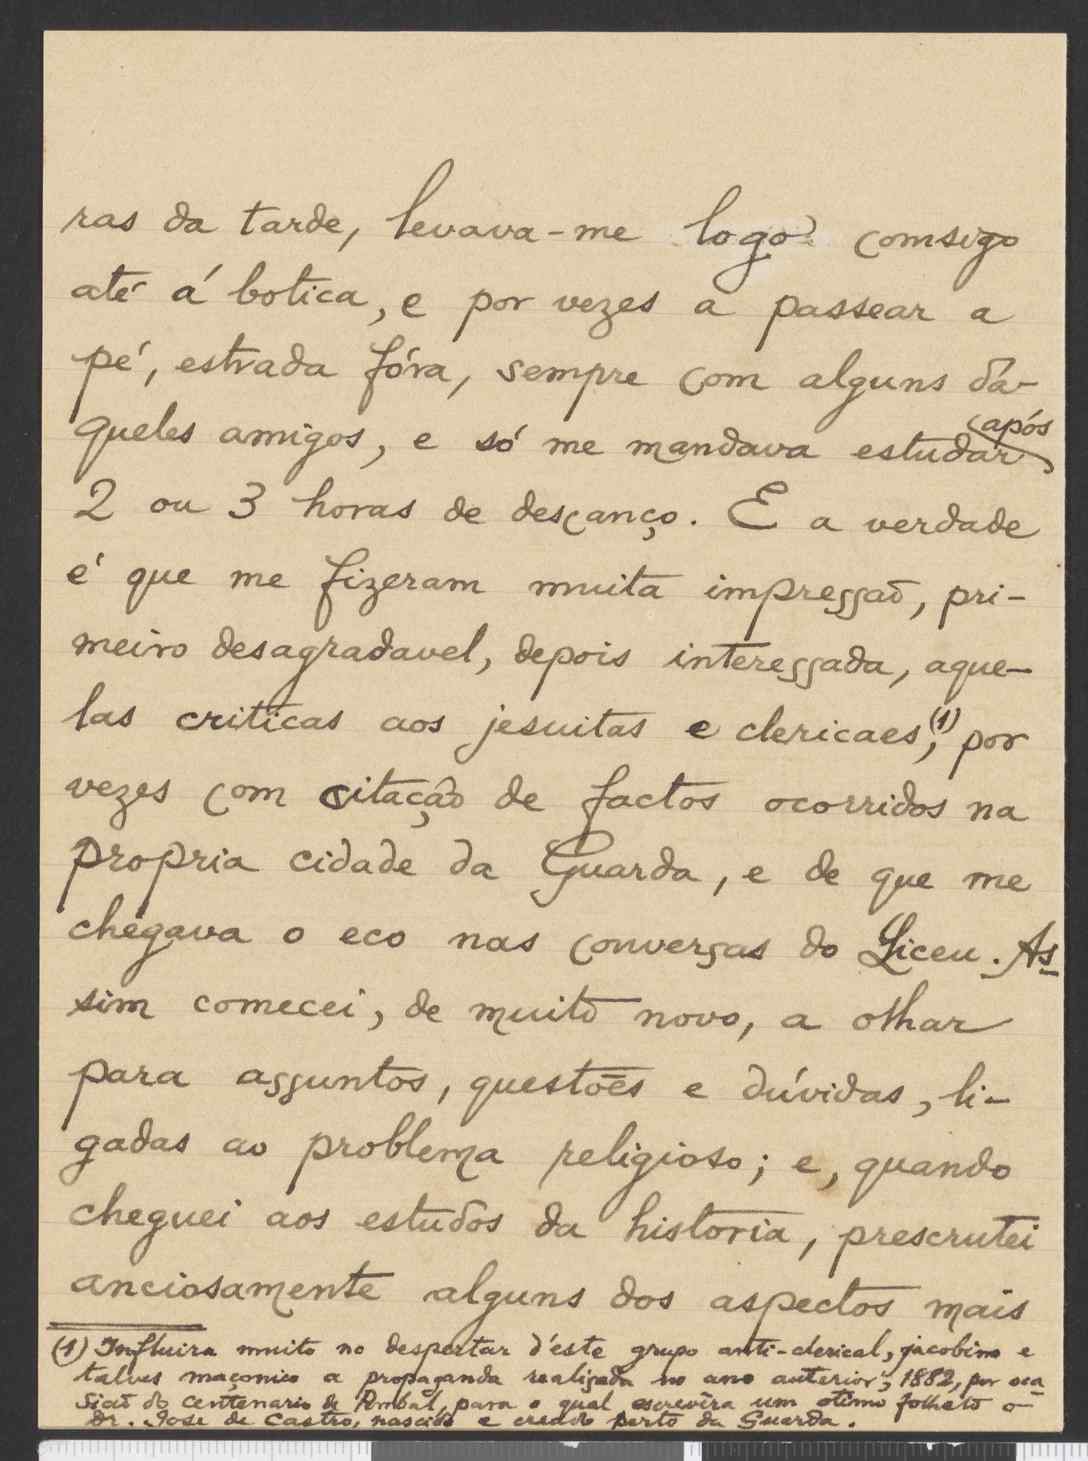 ras da tarde, levava-me logo comsigo
até á botica, e por vezes a passear a
pé, estrada fóra, sempre com alguns dá-
queles amigos, e só me mandava estudar após
2 ou 3 horas de descanço. E a verdade
é que me fizeram muita impressaõ, pri-
meiro desagradavel, depois interessada, aque-
las criticas aos jesuitas e clericaes,(1) por
vezes com citação de factos ocorridos na
propria cidade da Guarda, e de que me
chegava o eco nas conversas do Liceu. As-
sim comecei, de muito novo, a olhar
para assuntos, questões e dúvidas, li-
gadas ao problema religioso; e, quando
cheguei aos estudos da historia, prescrutei
anciosamente alguns dos aspectos mais
(1) Influira muito no despertar d'éste grupo anti-clerical, jacobino e
talves maçonico a propaganda realisada no ano anterior, 1882, por oca-
siaõ do centenario de Pombal, para o qual escrevêra um otimo folheto o
Dr. José de Castro, nascido e creado perto da Guarda.